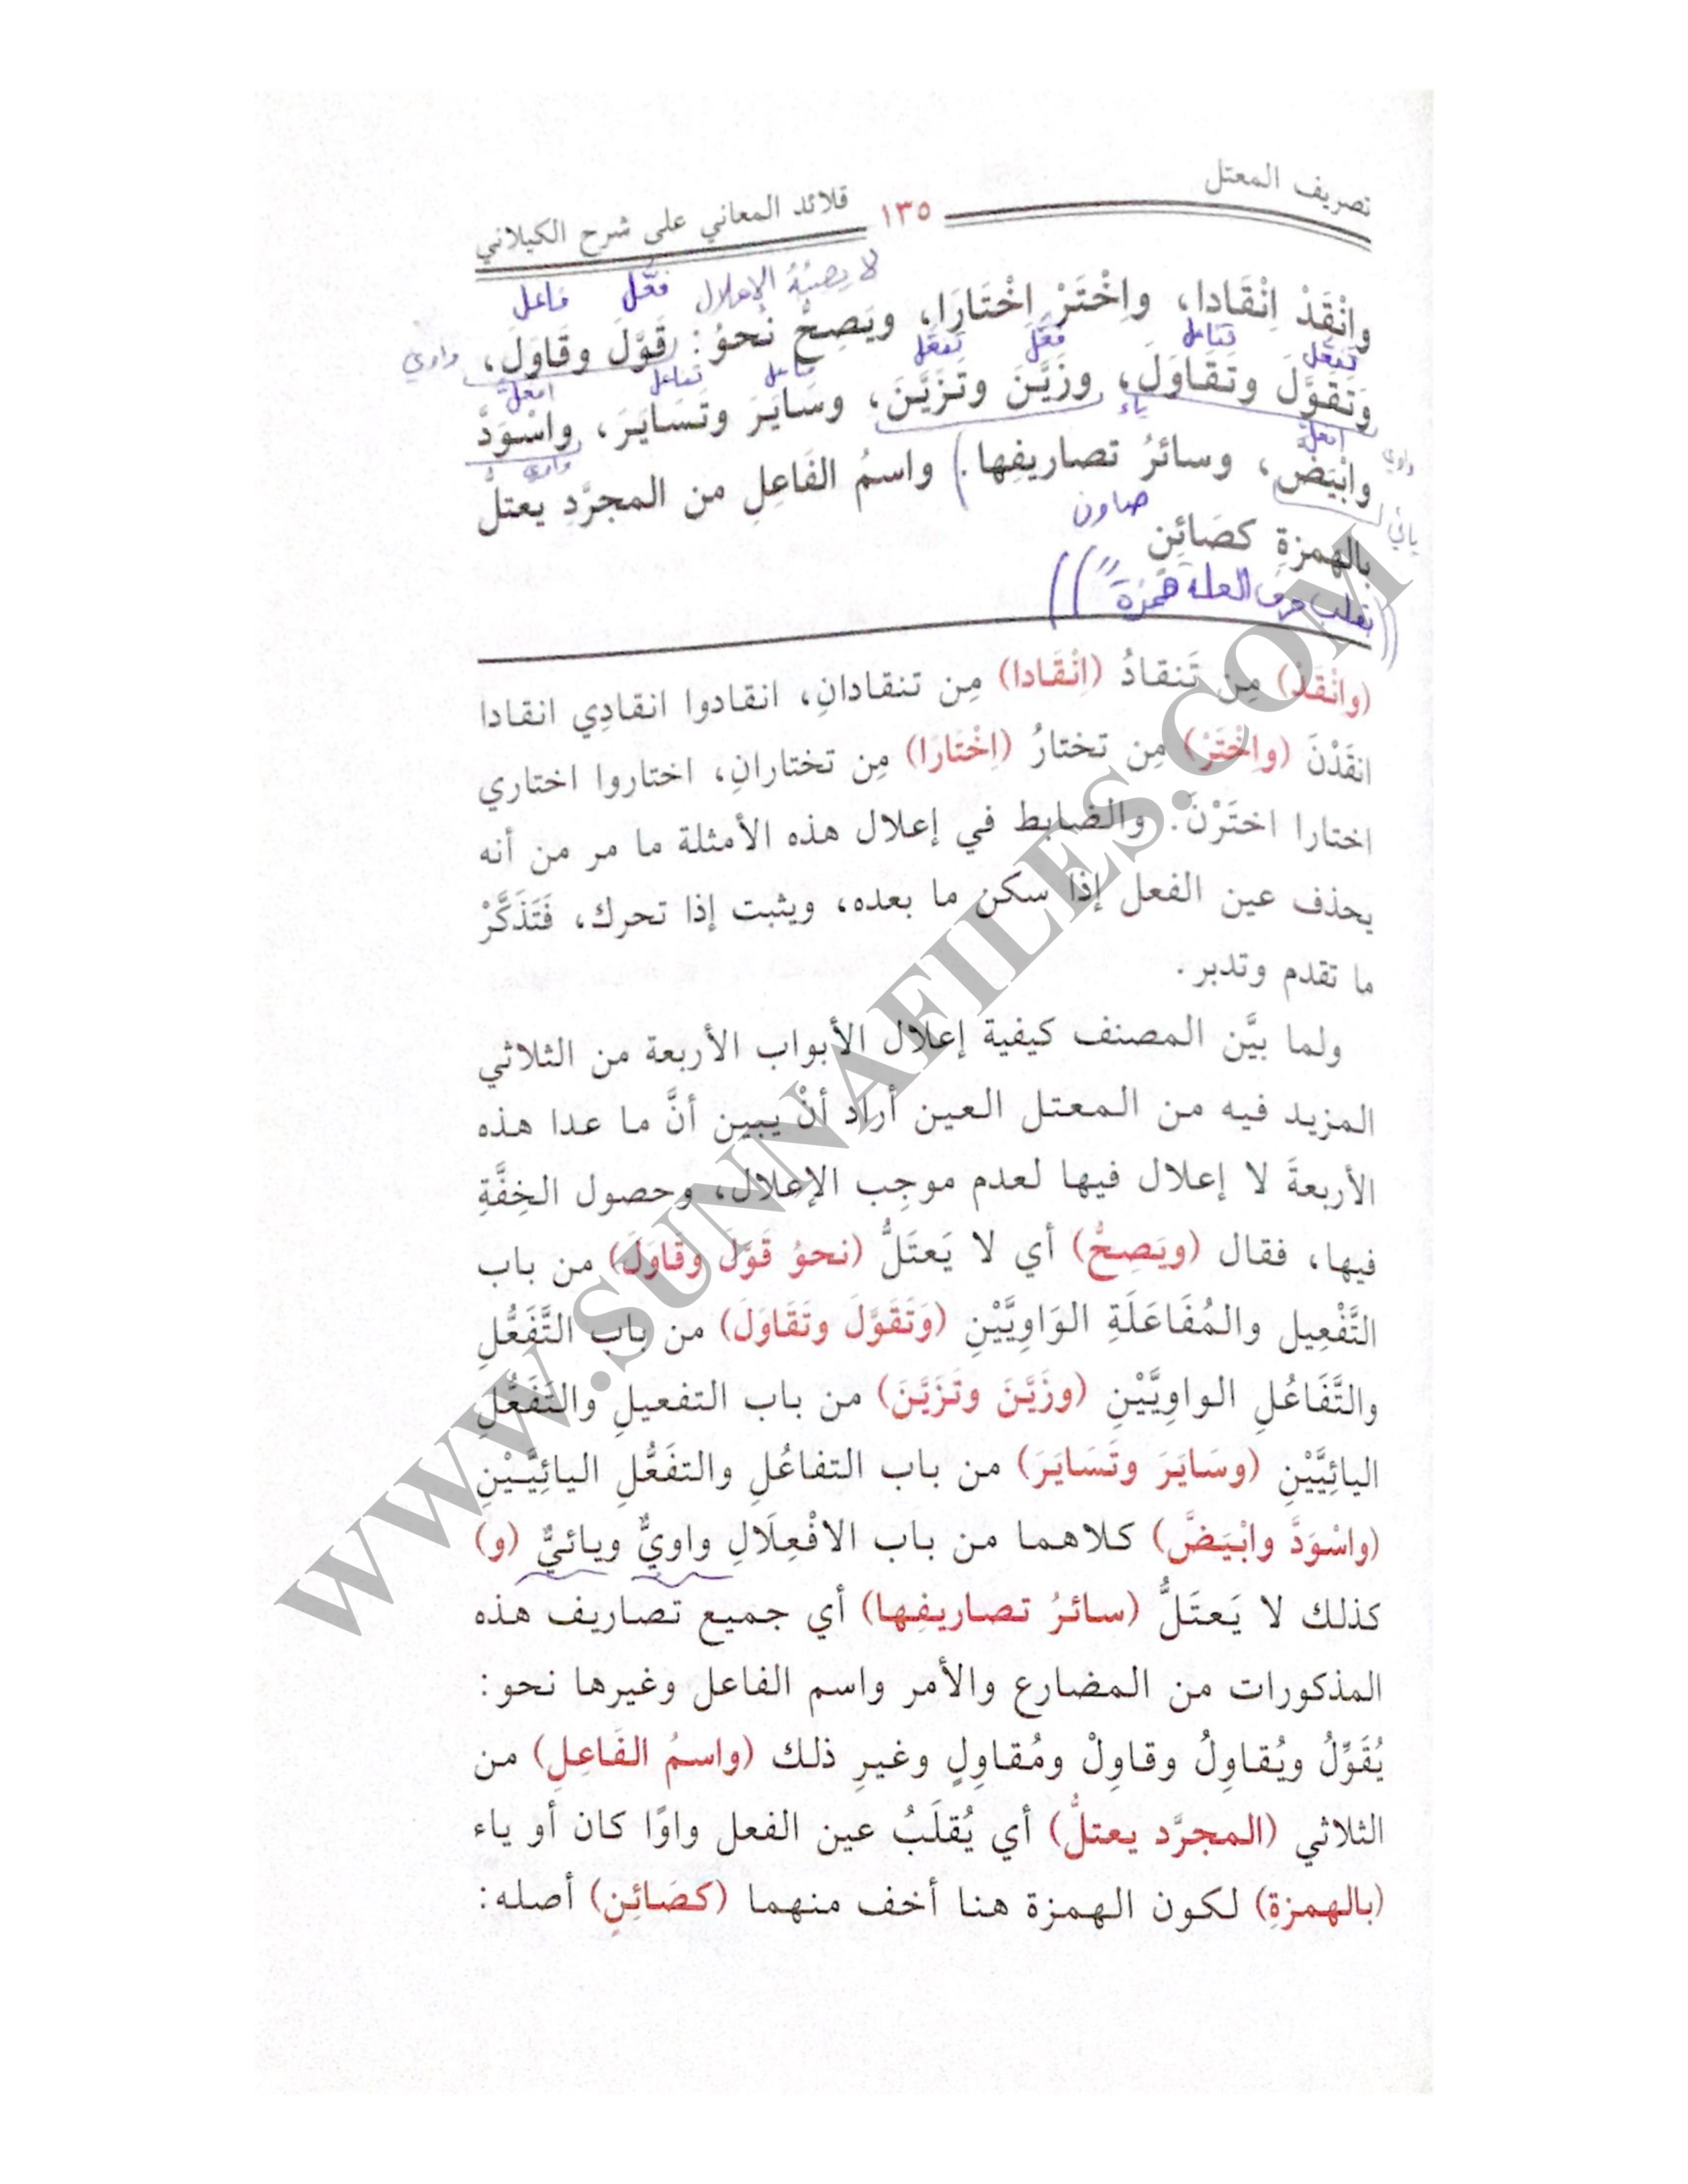 تصريف المعتل
١٣٥
قلائد المعاني على شرح الكيلاني
لا يصيبُهُ الإعلال فعَّل فاعل
وانْقَدْ اِنْقَادا، واِخْتَرْ اِخْتَارَا، ويَصِحُّ نحوُ: قَوَّلَ وقَاوَلَ،
واوي
تفعَّل تفاعل فعَّل تفعَّل فاعل تفاعل افعلَّ
وَتَقَوَّلَ وتَقَاوَلَ، وزَيَّنَ وتَزَيَّنَ، وسَايَرَ وتَسَايَرَ، واسْوَدَّ
واوي ياء افعلَّ واوي
وابْيَضَّ، وسائرُ تصاريفِها. واسمُ الفَاعِلِ من المجرَّدِ يعتلُّ
يائي صاون
بالهمزةِ كصَائِنٍ
بقلب حرف العلة همزة
(وانْقَدْ) مِن تَنقادُ (اِنْقَادا) مِن تنقادانِ، انقادوا انقادِي انقادا
انقَدْنَ (واِخْتَرْ) مِن تختارُ (اِخْتَارَا) مِن تختارانِ، اختاروا اختاري
اختارا اختَرْنَ. والضابط في إعلال هذه الأمثلة ما مر من أنه
يحذف عين الفعل إذا سكن ما بعده، ويثبت إذا تحرك، فَتَذَكَّرْ
ما تقدم وتدبر.
ولما بيَّن المصنف كيفية إعلال الأبواب الأربعة من الثلاثي
المزيد فيه من المعتل العين أراد أنْ يبين أنَّ ما عدا هذه
الأربعةَ لا إعلال فيها لعدم موجِب الإعلال، وحصول الخِفَّةِ
فيها، فقال (ويَصِحُّ) أي لا يَعتَلُّ (نحوُ قَوَّلَ وقَاوَلَ) من باب
التَّفْعِيل والمُفَاعَلَةِ الوَاوِيَّيْنِ (وَتَقَوَّلَ وتَقَاوَلَ) من باب التَّفَعُّلِ
والتَّفَاعُلِ الواوِيَّيْنِ (وزَيَّنَ وتَزَيَّنَ) من باب التفعيلِ والتَفَعُّلِ
اليائِيَّيْنِ (وسَايَرَ وتَسَايَرَ) من باب التفاعُلِ والتفَعُّلِ اليائِيَّيْنِ
(واسْوَدَّ وابْيَضَّ) كلاهما من باب الافْعِلَالِ واويٌّ ويائيٌّ (و)
كذلك لا يَعتَلُّ (سائرُ تصاريفِها) أي جميع تصاريف هذه
المذكورات من المضارع والأمر واسم الفاعل وغيرها نحو:
يُقَوِّلُ ويُقاوِلُ وقاوِلْ ومُقاوِلٍ وغيرِ ذلك (واسمُ الفَاعِلِ) من
الثلاثي (المجرَّد يعتلُّ) أي يُقلَبُ عين الفعل واوًا كان أو ياء
(بالهمزةِ) لكون الهمزة هنا أخف منهما (كصَائِنٍ) أصله:
WWW.SUNNAFILES.COM